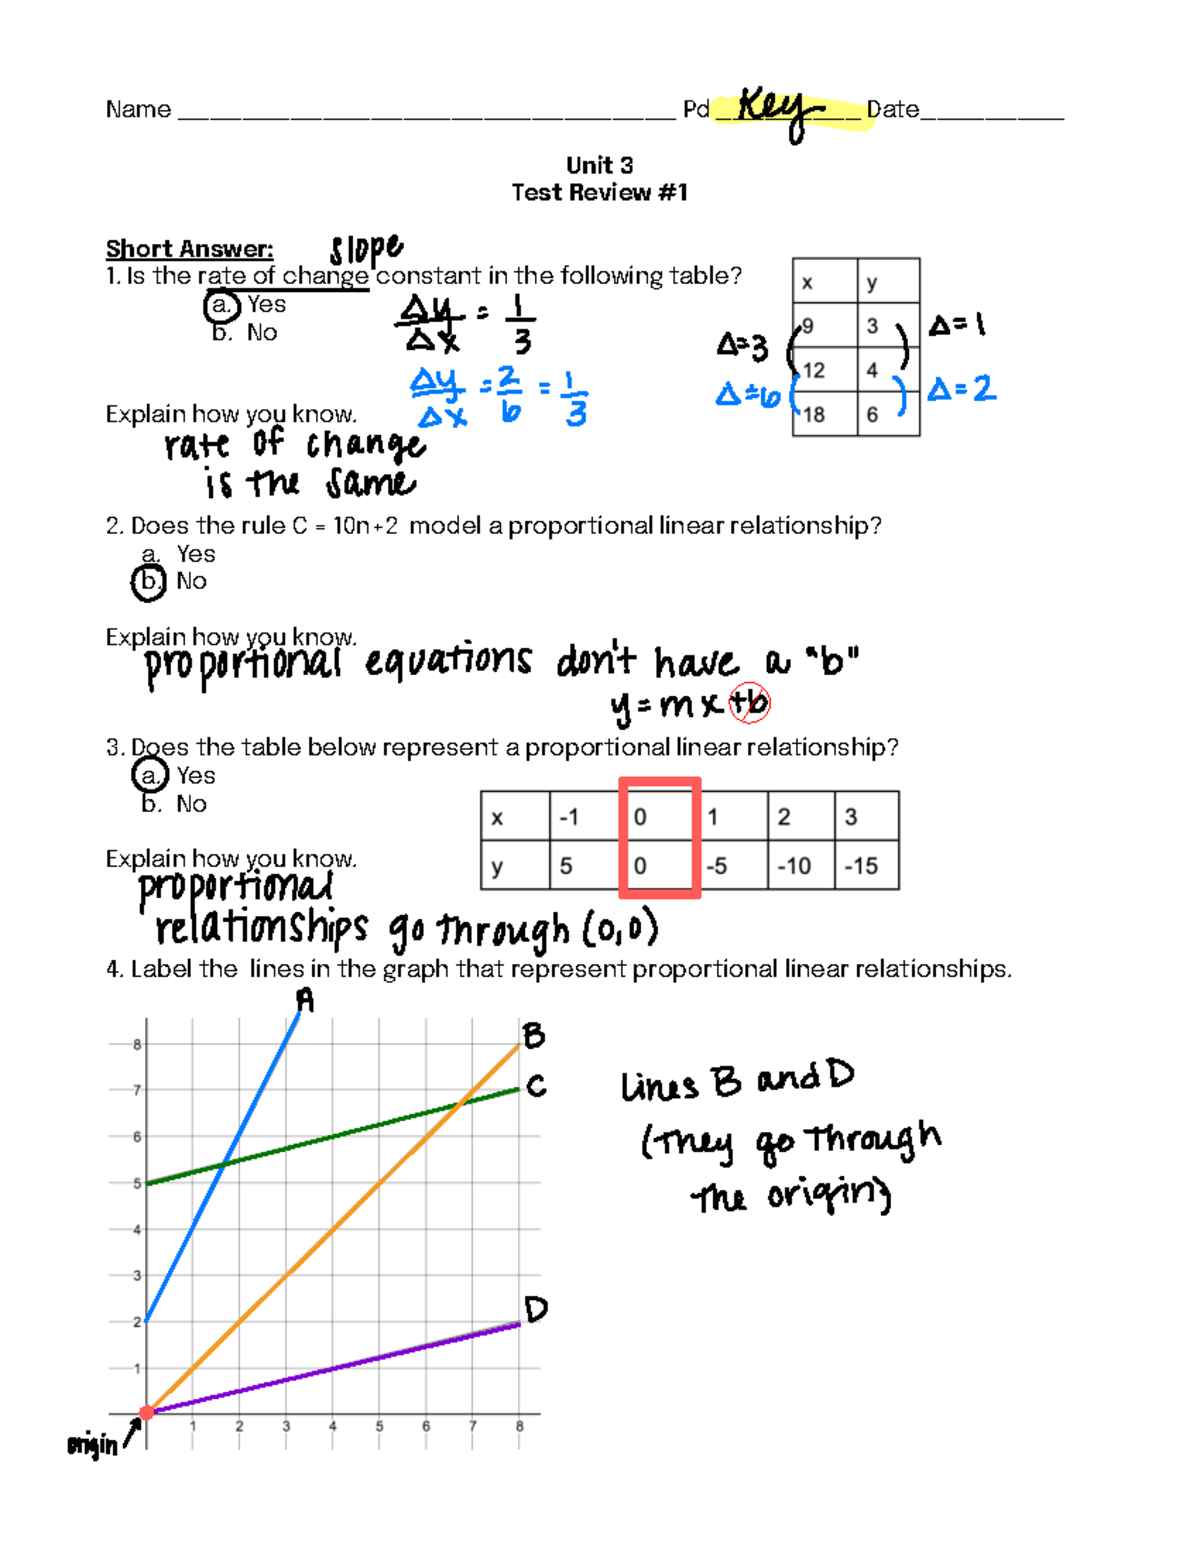 Name ______________________ Pd __________ Date__________
Key
Unit 3
Test Review #1
Short Answer:
slope
1. Is the rate of change constant in the following table?
a. Yes
b. No
Δy/Δx = 1/3
Δy/Δx = 2/6 = 1/3
x y
9 3
12 4
18 6
Δ=3
Δ=1
Δ=6
Δ=2
Explain how you know.
rate of change
is the same
2. Does the rule C = 10n+2 model a proportional linear relationship?
a. Yes
b. No
Explain how you know.
proportional equations don't have a "b"
y=mx+b
3. Does the table below represent a proportional linear relationship?
a. Yes
b. No
x -1 0 1 2 3
y 5 0 -5 -10 -15
Explain how you know.
proportional
relationships go through (0,0)
4. Label the lines in the graph that represent proportional linear relationships.
A
B
C
D
8
7
6
5
4
3
2
1
1 2 3 4 5 6 7 8
origin
lines B and D
(they go through
the origin)